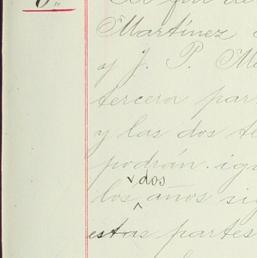 6"
Martínez
y J. P. M
tercera par
y las dos te
podrán igu
los dos años sig
estas partes